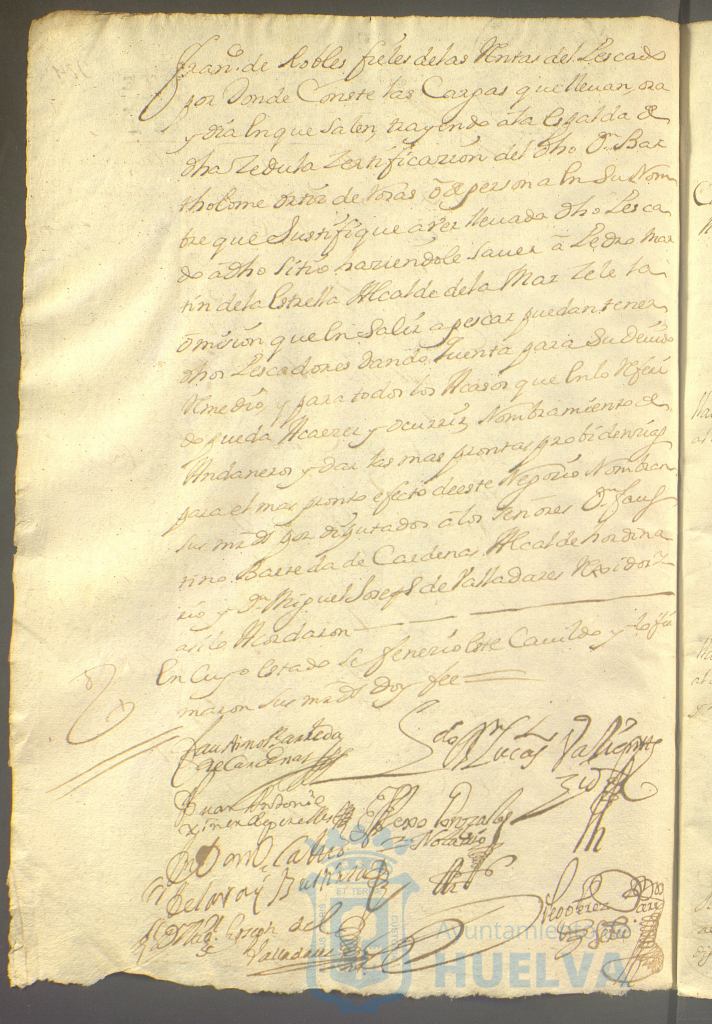 Fran.co de Robles fieles de las Rentas del Pescado
por Donde Conste las Cargas que llevan, ora
y dia en que salen, trayendo a la Espalda de
dha Zedula Zertificazion del dho D.n Bar
tholome ortiz de ... o de persona en su Nom
bre que Justifique aver llevado dho Pesca
do a dho sitio haziendole saver a Pedro Mar
tin de la Estrella Alcalde de la Mar zele la
omision que en Salir a pescar puedan tener
dhos Pescadores dando quenta para su devido
Remedio, y para todos los Acasos que en lo Referi
do pueda Acaezer y ocurrir, Nombramiento de
Andaneros y dar las mas promptas probidenzias
para el mas pronto efecto de este Negozio Nombran
sus mrds por diputados a los Señores D.n Faus
tino Barreda de Cardenas Alcalde hordina
rio y D.n Miguel Joseph de Valladares Rexidor
asi lo Acordaron
En Cuyo estado se fenezio este Cavildo y lo fir
maron sus mrds Doy fee
Faustino Barreda
de Cardenas
Ldo D.n Lucas
Juan Antonio
Ximenez
Pedro Gonzales
Notario
D.n Mig. Joseph de
Valladares
Ayuntamiento
HUELVA